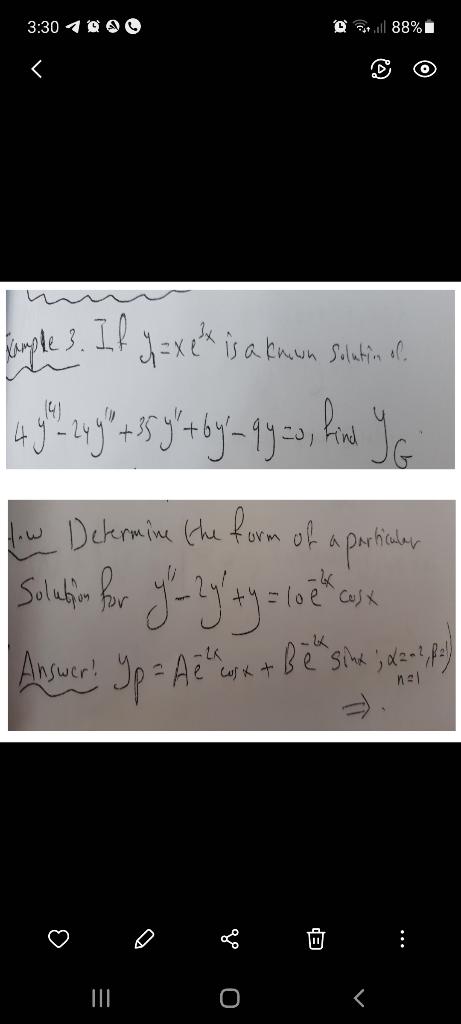 3:30
88%
Example 3. If y₁=xe³ˣ is a known solutin of
4y⁽⁴⁾-24y'''+35y''+6y'-9y=0, find y_G.
H.w Determine the form of a particular
Solution for y''-2y'+y=10e⁻²ˣ cosx
Answer! y_p = Ae⁻²ˣ cosx + Be⁻²ˣ sinx ; α=-2, β=1)
n=1
⇒.